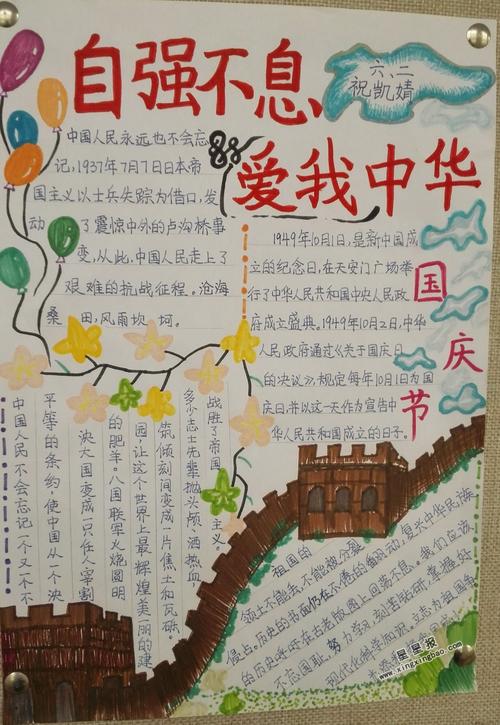 自强不息
爱我中华
六、二
祝凯婧
中国人民永远也不会忘
记,1937年7月7日日本帝
国主义以士兵失踪为借口,发
动了震惊中外的卢沟桥事
变,从此,中国人民走上了
艰难的抗战征程。沧海
桑田,风雨坎坷。
1949年10月1日,是新中国成
立的纪念日,在天安门广场举
行了中华人民共和国中央人民政
府成立盛典。1949年10月2日,中华
人民政府通过《关于国庆日
的决议》,规定每年10月1日为国
庆日,并以这一天作为宣告中
华人民共和国成立的日子。
国庆节
中国人民不会忘记一个又一个不
平等的条约,使中国从一个泱
泱大国变成一只任人宰割
的肥羊。八国联军火烧圆明
园,让这个世界上最辉煌美丽的建
筑倾刻间变成一片焦土和瓦砾,
多少志士先辈抛头颅,洒热血
战胜了帝国主义。
祖国的
领土不能丢,不能被分裂
侵占。历史的书面仍在不倦的翻动,复兴中华民族
的历史呼声在古老版图上回荡不息。我们应该
不忘国耻,努力学习,刻苦钻研,掌握好
现代化科学知识,立志为祖国
星星报
www.xingxingbao.com